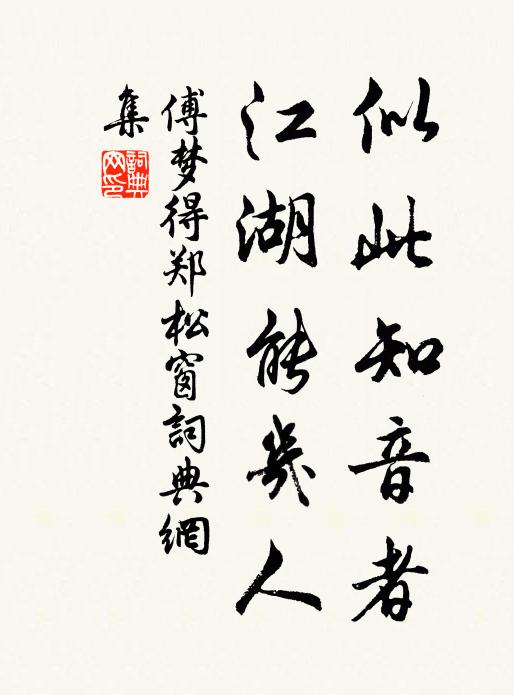 似此知音者
江湖能幾人
傅梦得郑松窗詞典網
集
詞典网印